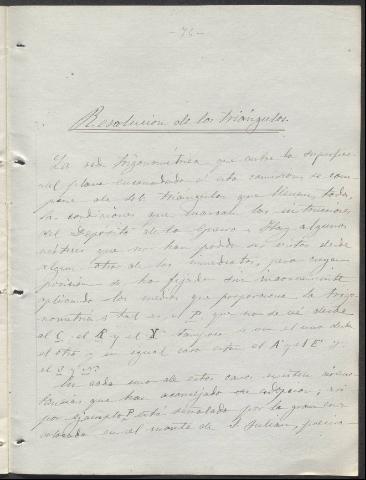 - 76 -
Resolucion de los triángulos.
La red trigonométrica que cubre la superficie
del plano encomendado á esta comision se com
pone de 46 triángulos que llenan todas
las condiciones que marcan las instrucciones
del Depósito de la Guerra. Hay algunos
vértices que no han podido ser vistos desde
algun otro de los inmediatos, pero cuya
posicion se ha fijado sin inconveniente
aplicando los medios que proporciona la trigo
nometria: tal es el P que no se vé desde
el C, el R y el V: tampoco se ven el uno desde
el otro y en igual caso estan el A y el E y
el
En cada uno de estos casos existen circuns-
tancias que han aconsejado su eleccion; asi
por ejemplo P está señalado por la gran cruz
colocada en el monte de S. Julian, punto